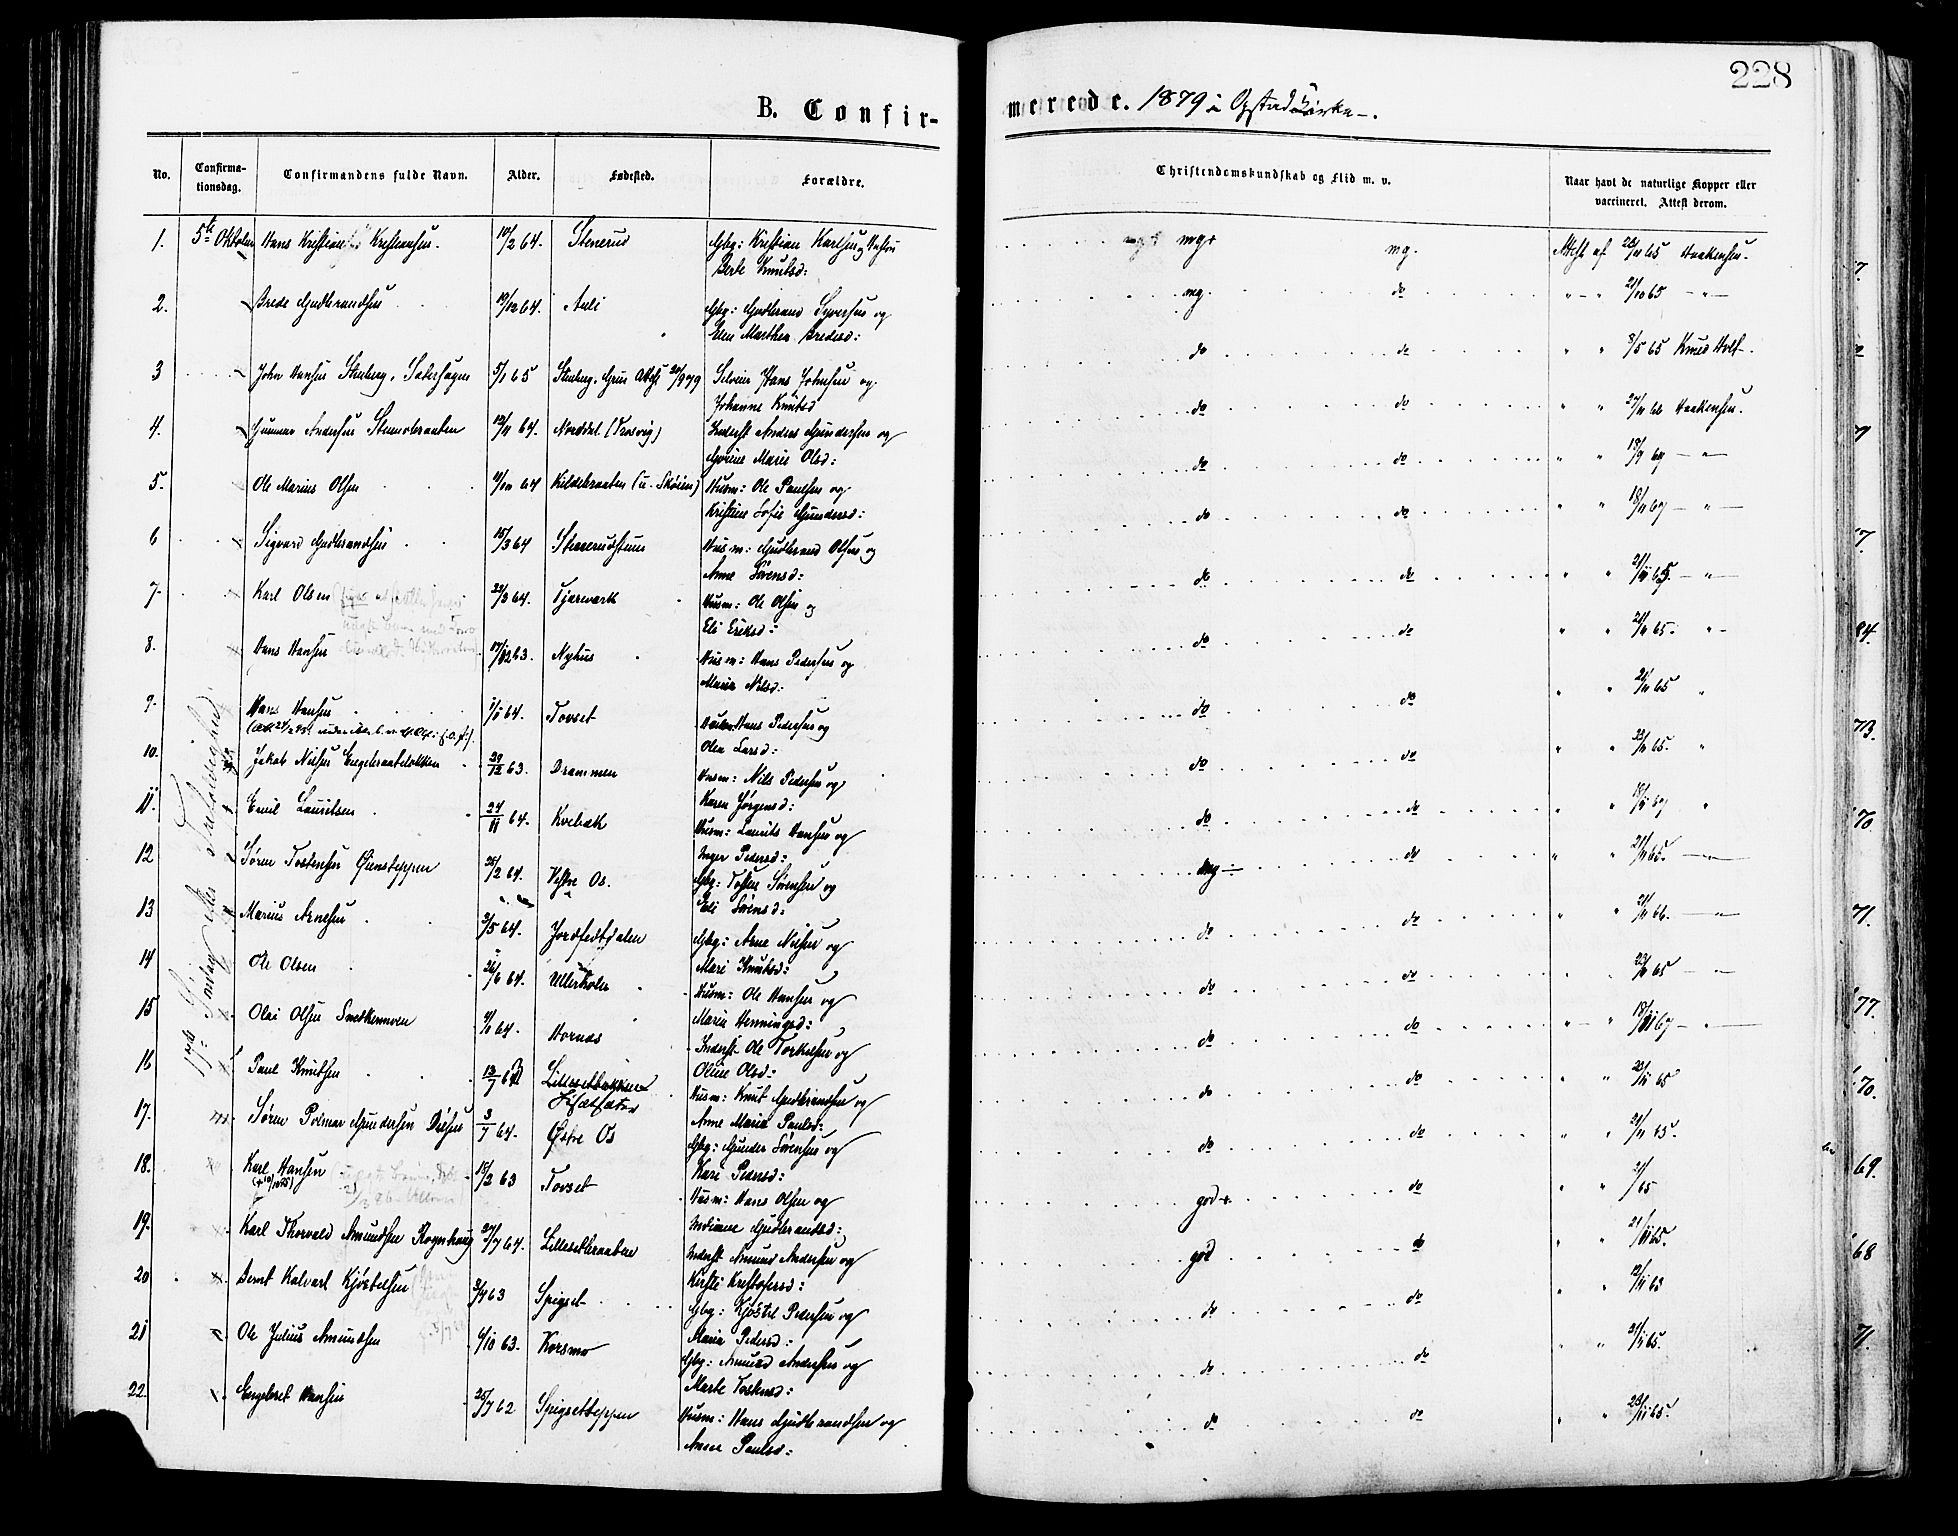 228
B. Confirmerende. 1879 i Opstad Kirke.
No. Confirmationsdag. Confirmandens fulde Navn. Alder. Fødested. Forældre. Christendomskundskab og Flid m. v. Naar havt de naturlige Kopper eller vaccineret. Attest derom.
17de Søndag efter Trefoldighed
1. 5te Oktober Hans Kristian Kristiansen. 10/2 64. Stenerud Gbg: Kristian Karlsen og Hustru mg+ mg. Attest af 23/11 65 Haakensen.
Berte Knutsd:
2. Brede Gudbrandsen 19/12 64. Auli Gbg: Gudbrand Syversen og mg. do " 21/10 65 "
Elen Marthea Bredesd:
3 John Hansen Stenberg, Sæterhagen 5/1 65 Stenberg, Grue Attest 30/9 79 Selveier Hans Johnsen og do do " " 8/5 65 Knud Holt.
Johanne Knutsd
4. Gunnar Andersen Stennebraaten 12/11 64. Norddal. (Trosvig) Inderst Anders Gundersen og do do " " 27/11 66 Haakensen.
Gorine Marie Olsd:
5. Ole Marius Olsen 9/10 64 Kildebraaten (u. Skøien) Husm: Ole Paulsen og do do " " 18/9 69 "
Kristine Sofie Gundersd:
6 Sigvard Gudbrandsen 15/3 64 Stenerudstuen Husm: Gudbrand Olsen og do do " " 18/11 67 "
Anne Sørensd:
7. Karl Olsen 22/3 64. Tjernverk Husm: Ole Olsen og do do " " 21/11 65. "
Eli Eriksd:
8. Hans Hansen 17/12 63. Nyhus Husm: Hans Pedersen og do do " " 21/11 65. "
Marie Nilsd:
9. Hans Hansen 1/1 64. Tovset Hans Pedersen og do do " " 21/11 65 "
Olea Larsd:
10. Jakob Nilsen Engebraatebakken 29/12 63. Drammen Husm: Nils Pedersen og do do " " 23/11 65. "
Karen Jørgensd:
11. Emil Lauritsen 24/11 64. Kvebæk Husm: Laurits Hansen og do do " 18/11 67 "
Inger Pedersd:
12 Søren Tostensen Øiensteppen 25/2 64. Vestre Os. Gbg: Tosten Sørensen og mg÷ do " " 21/11 65. "
Eli Sørensd:
13 Marius Arnesen 3/5 64. Jordfedtdalen Gbg: Arne Nilsen og do do " " 21/11 66. "
Mari Knutsd:
14 Ole Olsen 26/6 64. Ullerholen Husm: Ole Hansen og do do " 23/11 65 "
Marie Henningsd:
15 Olai Olsen Snedkermoen 4/1 64. Hornæs Inderst Ole Torkelsen og do do " " 18/11 67 "
Oline Olsd:
16 Paul Knutsen 13/7 63 Lillesetbakken Husm: Knut Gudbrandsen og do do " " 23/11 65
Anne Maria Paulsd:
17. Søren Polmar Gundersen 3/7 64. Østre Os Gbg: Gunder Sørensen og do do " " 21/11 65.
Kari Pedersd:
18. Karl Hansen 15/2 63 Tovset Husm: Hans Olsen og god+ do " " 21/ 65
Indiane Gudbrandsd:
19. Karl Thorvald Amundsen Rognhaug 27/7 64. Lillesetbraaten Inderst Amund Andersen og god do " " 21/11 65.
Kirsti Kristofersd:
20 Bernt Kalvart Kjøstelsen 3/4 63 Spigset Gbg: Kjøstel Pedersen og do do " " 12/11 63
Maria Pedersd:
21 Ole Julius Amundsen 4/10 63. Korsmo Gbg: Amund Andersen og do do " " 21/11 65.
Marte Tostensd:
22. Engebret Hansen 25/7 62 Spigsetteppen Husm: Hans Gudbrandsen og do do " " 23/11 65.
Anne Paulsd: